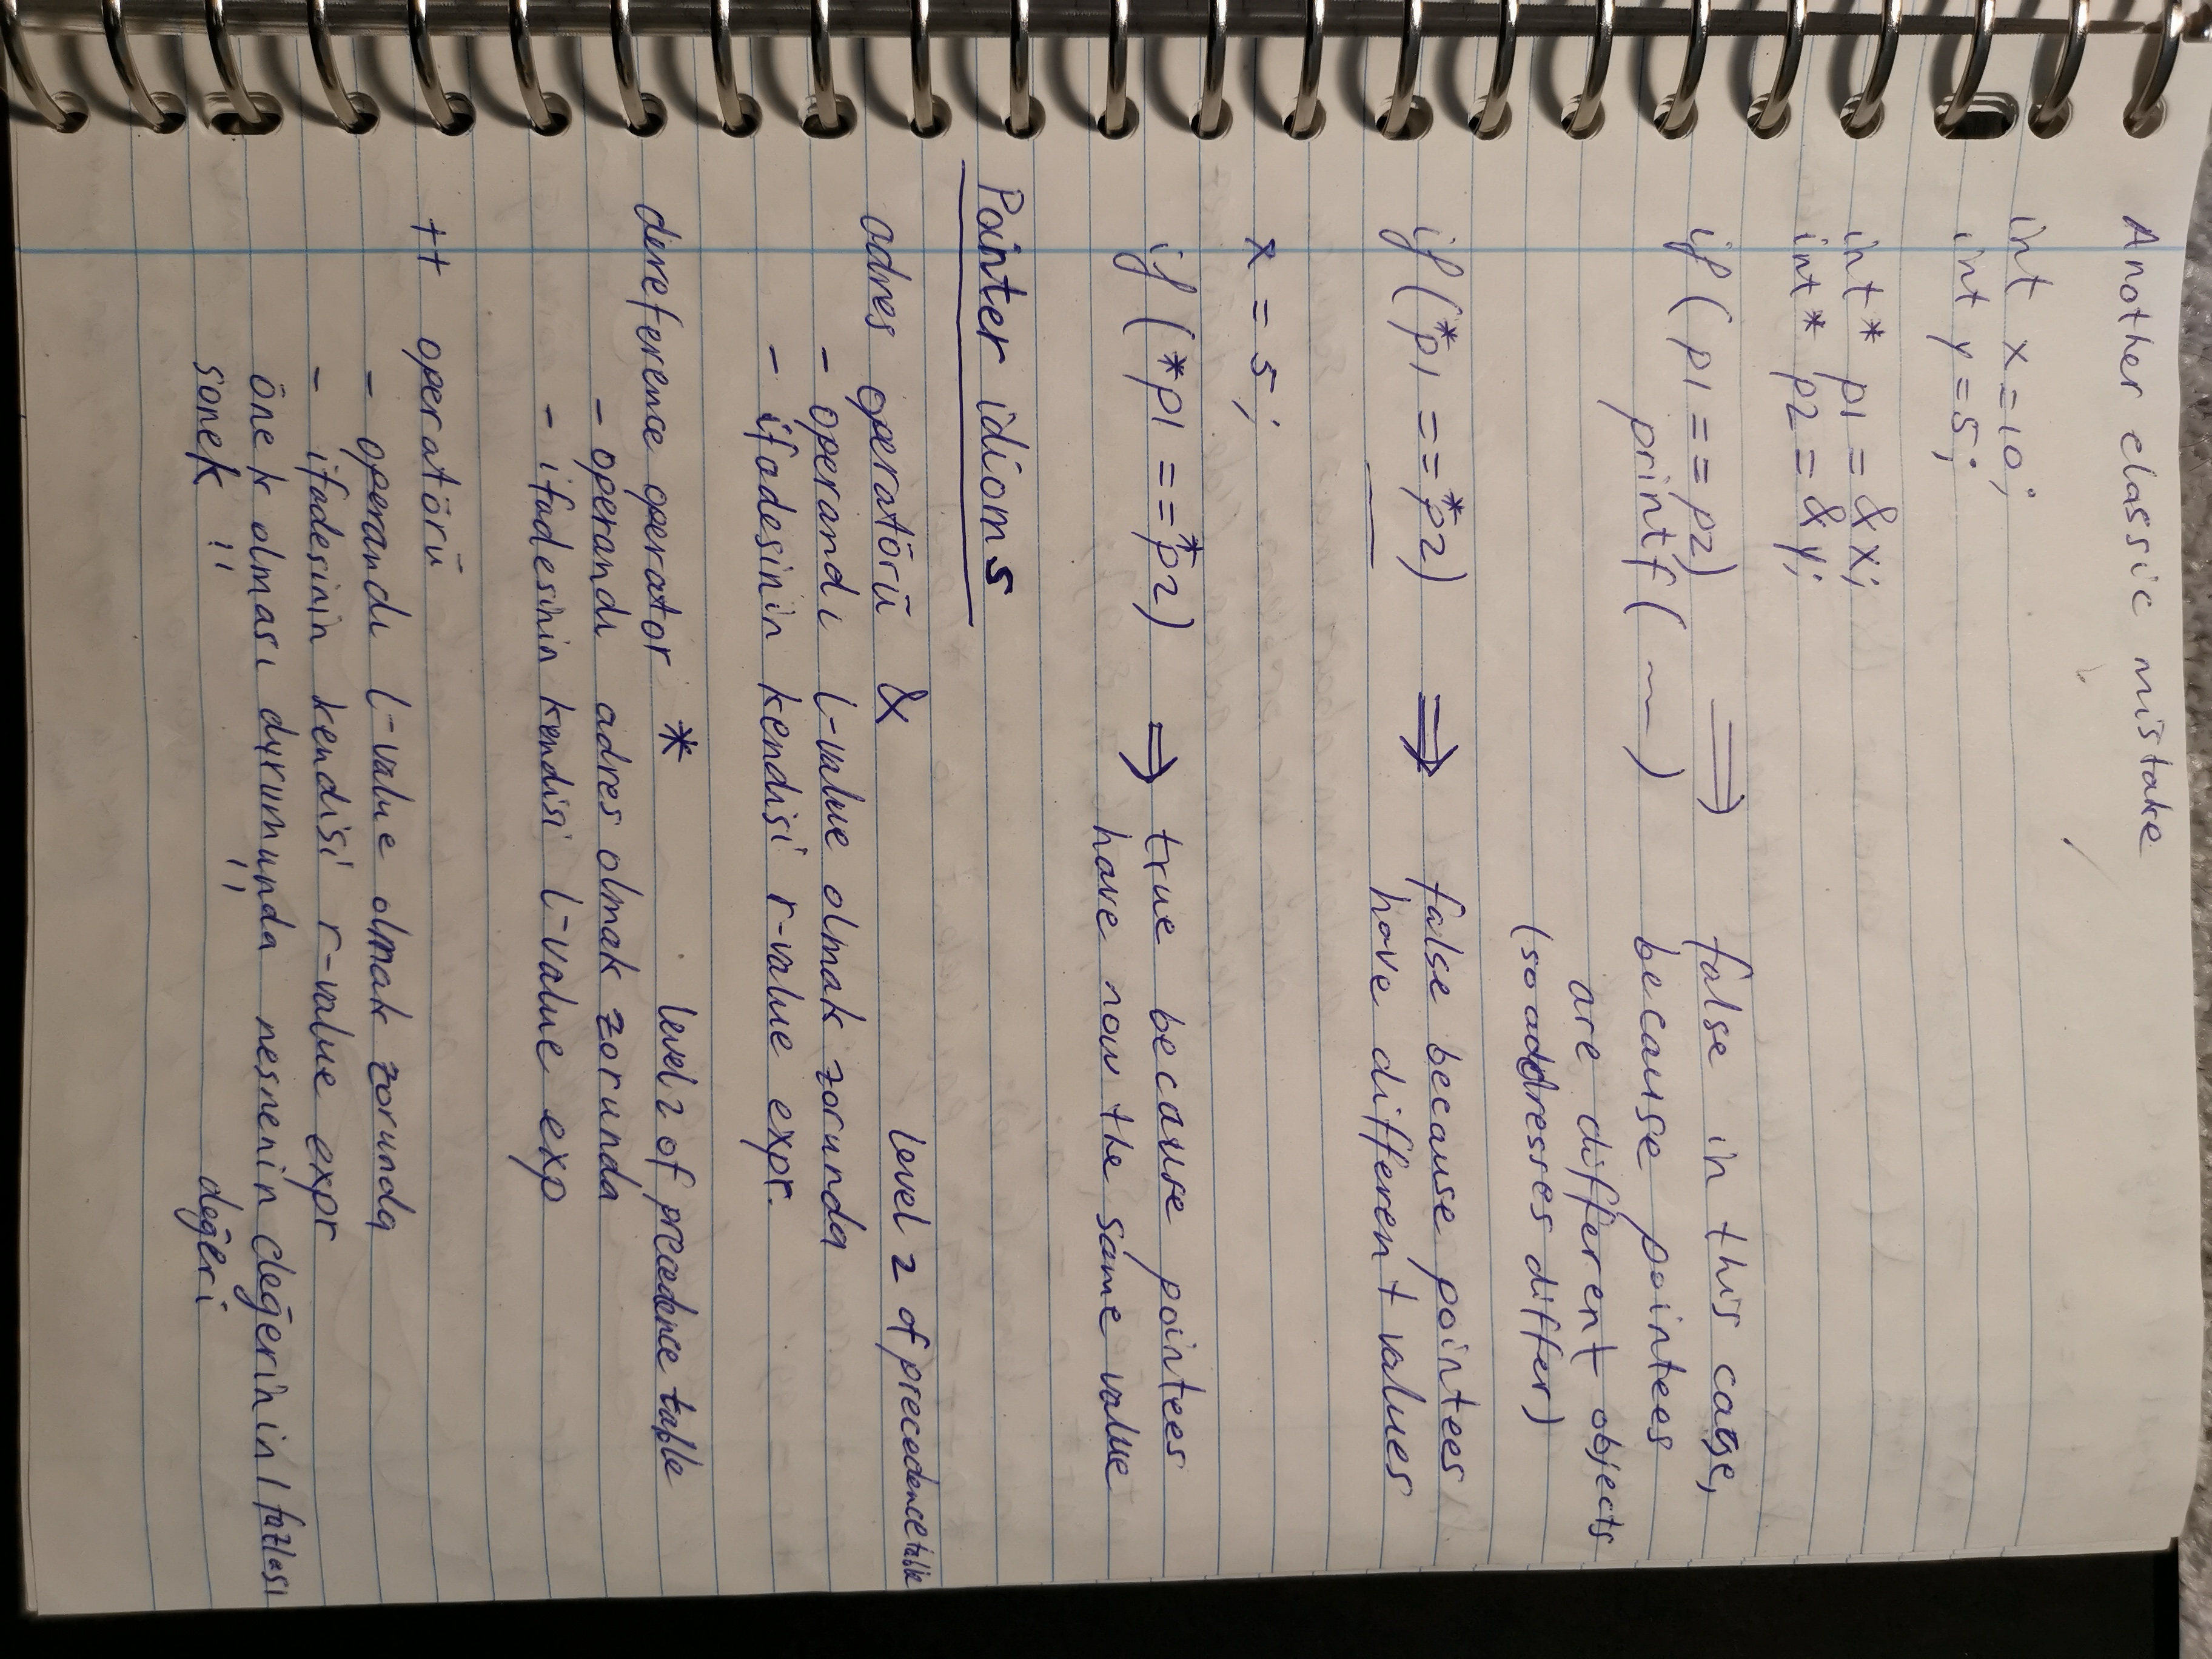 Another classic mistake
int x = 10;
int y = 5;
int* p1 = &x;
int* p2 = &y;
if ( p1 == p2) ⟹ false in this case,
printf( ~ ) because pointees
are different objects
(so addresses differ)
if (*p1 == *p2) ⟹ false because pointees
have different values
x = 5;
if (*p1 == *p2) ⟹ true because pointees
have now the same value
Pointer idioms
adres operatörü & level 2 of precedence table
- operandı l-value olmak zorunda
- ifadesinin kendisi r-value expr.
dereference operator * level 2 of precedence table
- operandı adres olmak zorunda
- ifadesinin kendisi l-value exp
++ operatörü
- operandı l-value olmak zorunda
- ifadesinin kendisi r-value expr
önek olması durumunda nesnenin değerinin 1 fazlası
sonek " " değeri